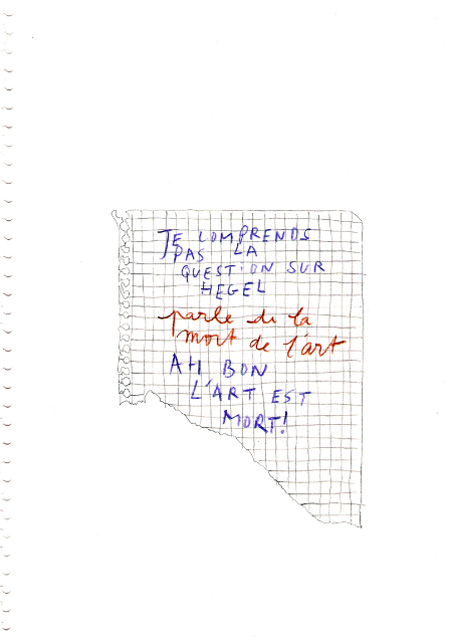 JE COMPRENDS
PAS LA
QUESTION SUR
HEGEL
parle de la
mort de l'art
AH BON
L'ART EST
MORT!